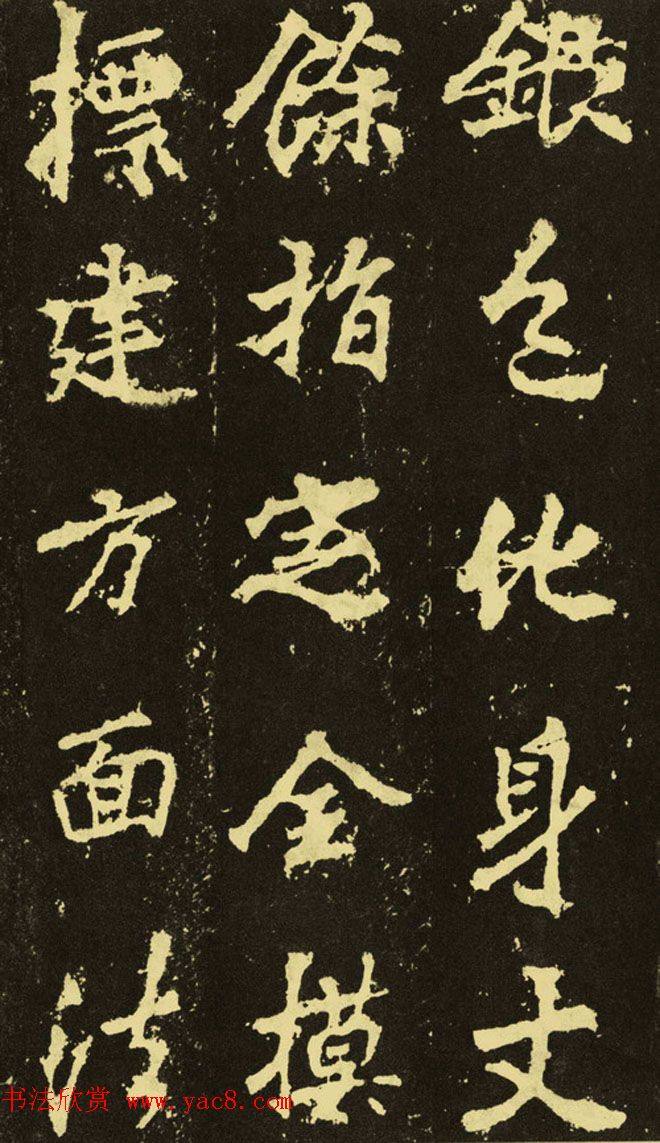 銀色化身丈
餘指定全摸
摽建方面法
书法欣赏 www.yac8.com